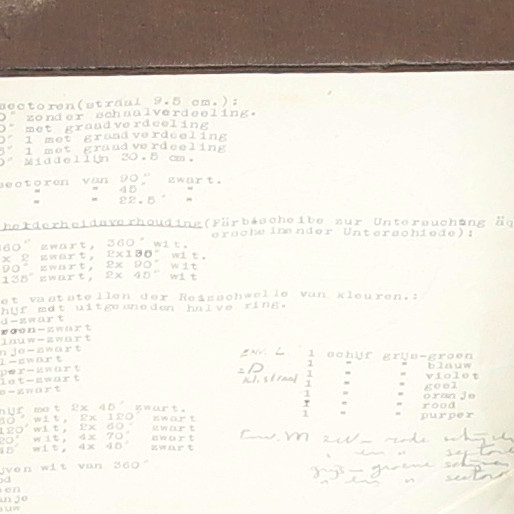 sectoren(straal 9.5 cm.):
0° zonder schaalverdeeling.
0° met graadverdeeling
0° 1 met graadverdeeling
5° 1 met graadverdeeling
0° Middellijn 20.5 cm.
sectoren van 90° zwart.
" " 45° "
" " 22.5° "
helderheidsverhouding(Färbscheibe zur Untersuchung äq
erscheinender Unterschiede):
360° zwart, 360° wit.
x 2 zwart, 2x180° wit.
90° zwart, 2x 90° wit
135° zwart, 2x 45° wit
et vaststellen der Reizschwelle van kleuren.:
hijf mdt uitgesneden halve ring.
d-zwart
roen-zwart
lauw-zwart
nje-zwart
l-zwart
per-zwart
let-zwart
s-zwart
1 schijf grijs-groen
1 " " blauw
1 " " violet
1 " " geel
1 " " oranje
1 " " rood
1 " " purper
hijf met 2x 45° zwart.
60° wit, 2x 120° zwart
120° wit, 2x 60° zwart
20° wit, 4x 70° zwart
45° wit, 4x 45° zwart
jven wit van 360°
od
oen
anje
auw